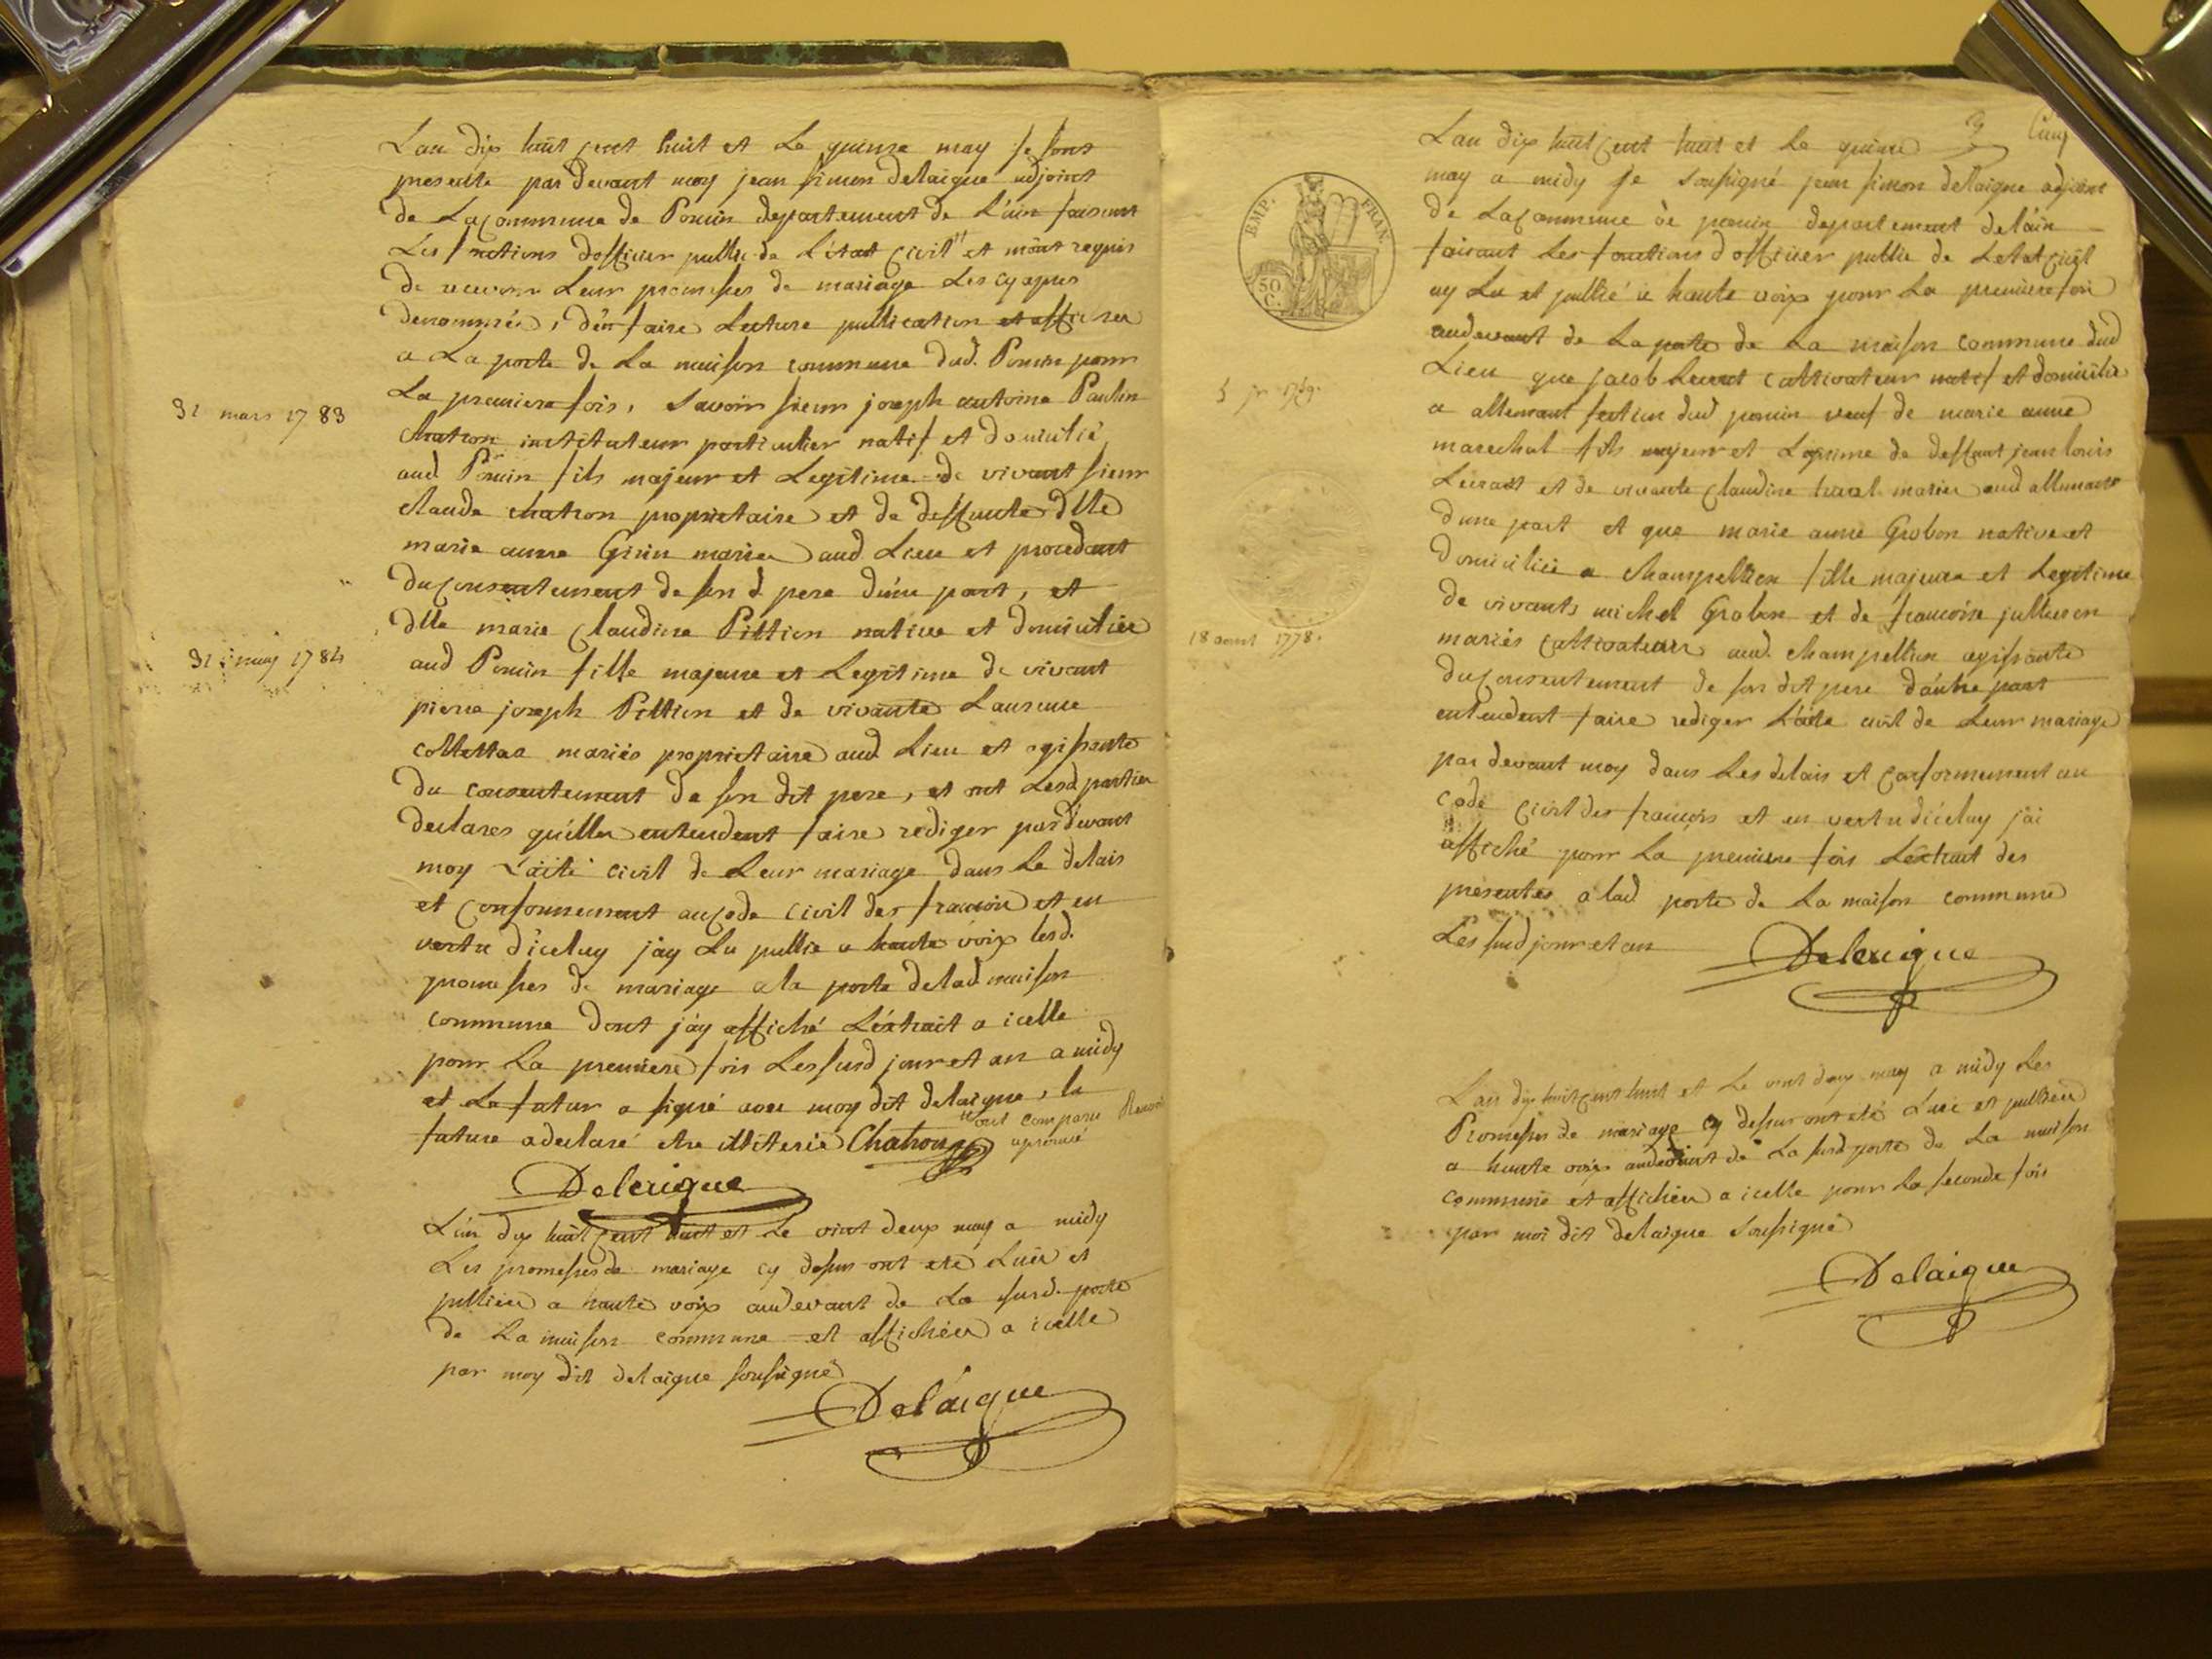 Lan dix huit cent huit et Le quinze may se sont
presenté par devant moy jean simon delaigue adjoint
de La commune de Pouin departement de L'ain faisant
Les fonctions dofficier public de L'état civil " et m'ont requis
de recevoir Leur promesses de mariage Les cy apres
denommées, d'en faire Lecture publication et afficher
a La porte de La maison commune dud. Pouin pour
La premiere fois, Savoir sieur joseph antoine Paulin
31 mars 1783
chatron instituteur particulier natif et domicilié
aud Pouin fils majeur et Legitime de vivant sieur
claude chatron proprietaire et de deffunte dlle
marie anne Girin mariés aud Lieu et procedant
du consentement de son d pere d'une part, et
dlle marie Claudine Pittion native et domiciliée
31 may 1784
aud Pouin fille majeure et Legitime de vivant
pierre joseph Pittion et de vivante Laurence
mariés proprietaire aud Lieu et agissante
du consentement de son dit pere, et ont Lesd parties
declarés qu'elles entendent faire rediger pardevant
moy L'acte civil de Leur mariage dans Le delais
et conformement au code civil des francois et en
vertu d'iceluy j'ay Lu publié a haute voix lesd.
promesses de mariage a la porte de lad maison
commune dont j'ay affiché L'extrait a icelle
pour La premiere fois Les susd jour et an a midy
et Le futur a signé avec moy dit delaigue, la
" ont comparu Renvoi
future a declaré etre illiterée Chatron
aprouvé
Delaigue
L'an dix huit cent huit et Le vint deux may a midy
Les promesses de mariage cy dessus ont eté Luës et
publiées a haute voix audevant de La susd. porte
de La maison commune et affichées a icelle
par moy dit delaigue soussigné
Delaigue
3 Cinq
Lan dix huit cent huit et Le quinze
may a midy je soussigné jean simon delaigue adjoint
de La commune de pouin departement de lain
faisant Les fonctions d'officier public de Letat civil
ay Lu et publié a haute voix pour La premiere fois
audevant de La porte de La maison commune dud
Lieu que jacob cultivateur natif et domicilié
a allemant section dud pouin veuf de marie anne
marechal fils majeur et Legitime de deffunt jean louis
et de vivante Claudine mariés aud allemant
dune part et que marie anne Grobon native et
domiciliée a champellien fille majeure et Legitime
18 aout 1778.
de vivants michel Grobon et de francoise
mariés cultivateurs aud. champellien agissante
du consentement de son dit pere d'autre part
entendent faire rediger L'acte civil de Leur mariage
par devant moy dans Les delais et conformement au
code civil des francois et en vertu d'iceluy j'ai
affiché pour La premiere fois L'extrait des
presentes a lad porte de La maison commune
Les susd jour et an
Delaigue
EMP. FRAN.
50 C.
L'an dix huit cent huit et Le vint deux may a midy Les
Promesses de mariage cy dessus ont eté Luës et publiées
a haute voix audevant de La susd porte de La maison
commune et affichées a icelle pour La seconde fois
par moi dit delaigue soussigné
Delaigue